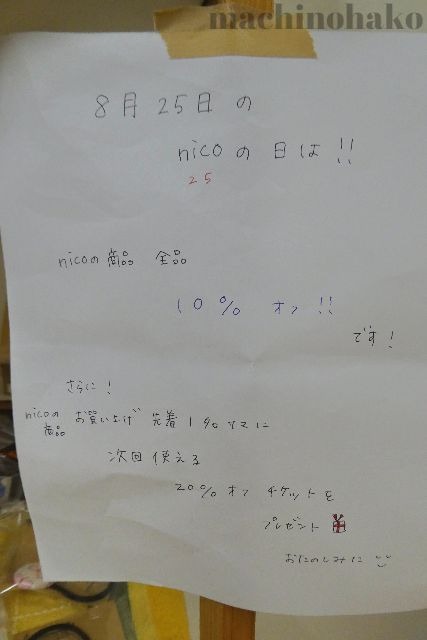 machinohako
8月25日の
nicoの日は!!
25
nicoの商品 全品
10% オフ!!
です!
さらに!
nicoの商品 お買い上げ 先着1名さまに
次回使える
20%オフ チケットを
プレゼント
おたのしみに